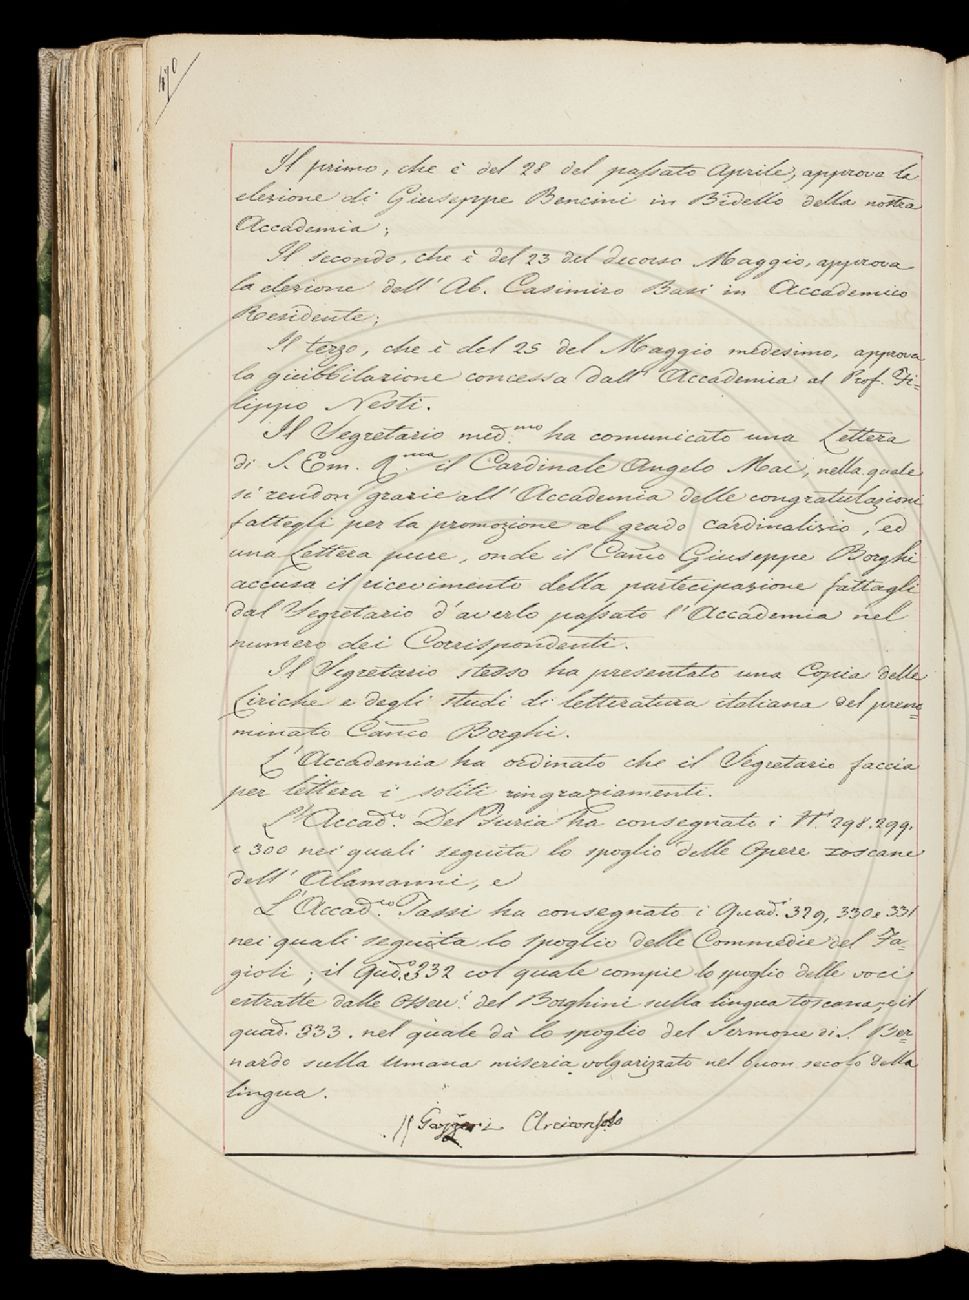 470
Il primo, che è del 28 del passato Aprile, approva la
elezione di Giuseppe Bencini in Bidello della nostra
Accademia;
Il secondo, che è del 23 del decorso Maggio, approva
la elezione dell' Ab. Casimiro Basi in Accademico
Residente;
Il terzo, che è del 25 del Maggio medesimo, approva
la giubbilazione concessa dall' Accademia al Prof. Fi=
lippo Nesti.
Il Segretario med.mo ha comunicato una Lettera
di S. Em. R.ma il Cardinale Angelo Mai, nella quale
si rendon grazie all' Accademia delle congratulazioni
fattegli per la promozione al grado cardinalizio, ed
una Lettera pure, onde il Can.co Giuseppe Borghi
accusa il ricevimento della partecipazione fattagli
dal Segretario d'averlo passato l'Accademia nel
numero dei Corrispondenti.
Il Segretario stesso ha presentato una Copia delle
Liriche e degli studi di letteratura italiana del preno=
minato Can.co Borghi.
L'Accademia ha ordinato che il Segretario faccia
per lettera i soliti ringraziamenti.
L'Accad.co Del Furia ha consegnato i N.i 298. 299.
e 300 nei quali seguita lo spoglio delle Opere toscane
dell' Alamanni, e
L'Accad.co Tassi ha consegnato i Quad.i 329, 330 e 331
nei quali seguita lo spoglio delle Commedie del Fa=
gioli; il Quad.o 332 col quale compie lo spoglio delle voci
estratte dalle Osserv.i del Borghini sulla lingua toscana, e il
quad. 333. nel quale dà lo spoglio del Sermone di S. Ber=
nardo sulla umana miseria volgarizzato nel buon secolo della
lingua.
Gazzeri Arciconsolo